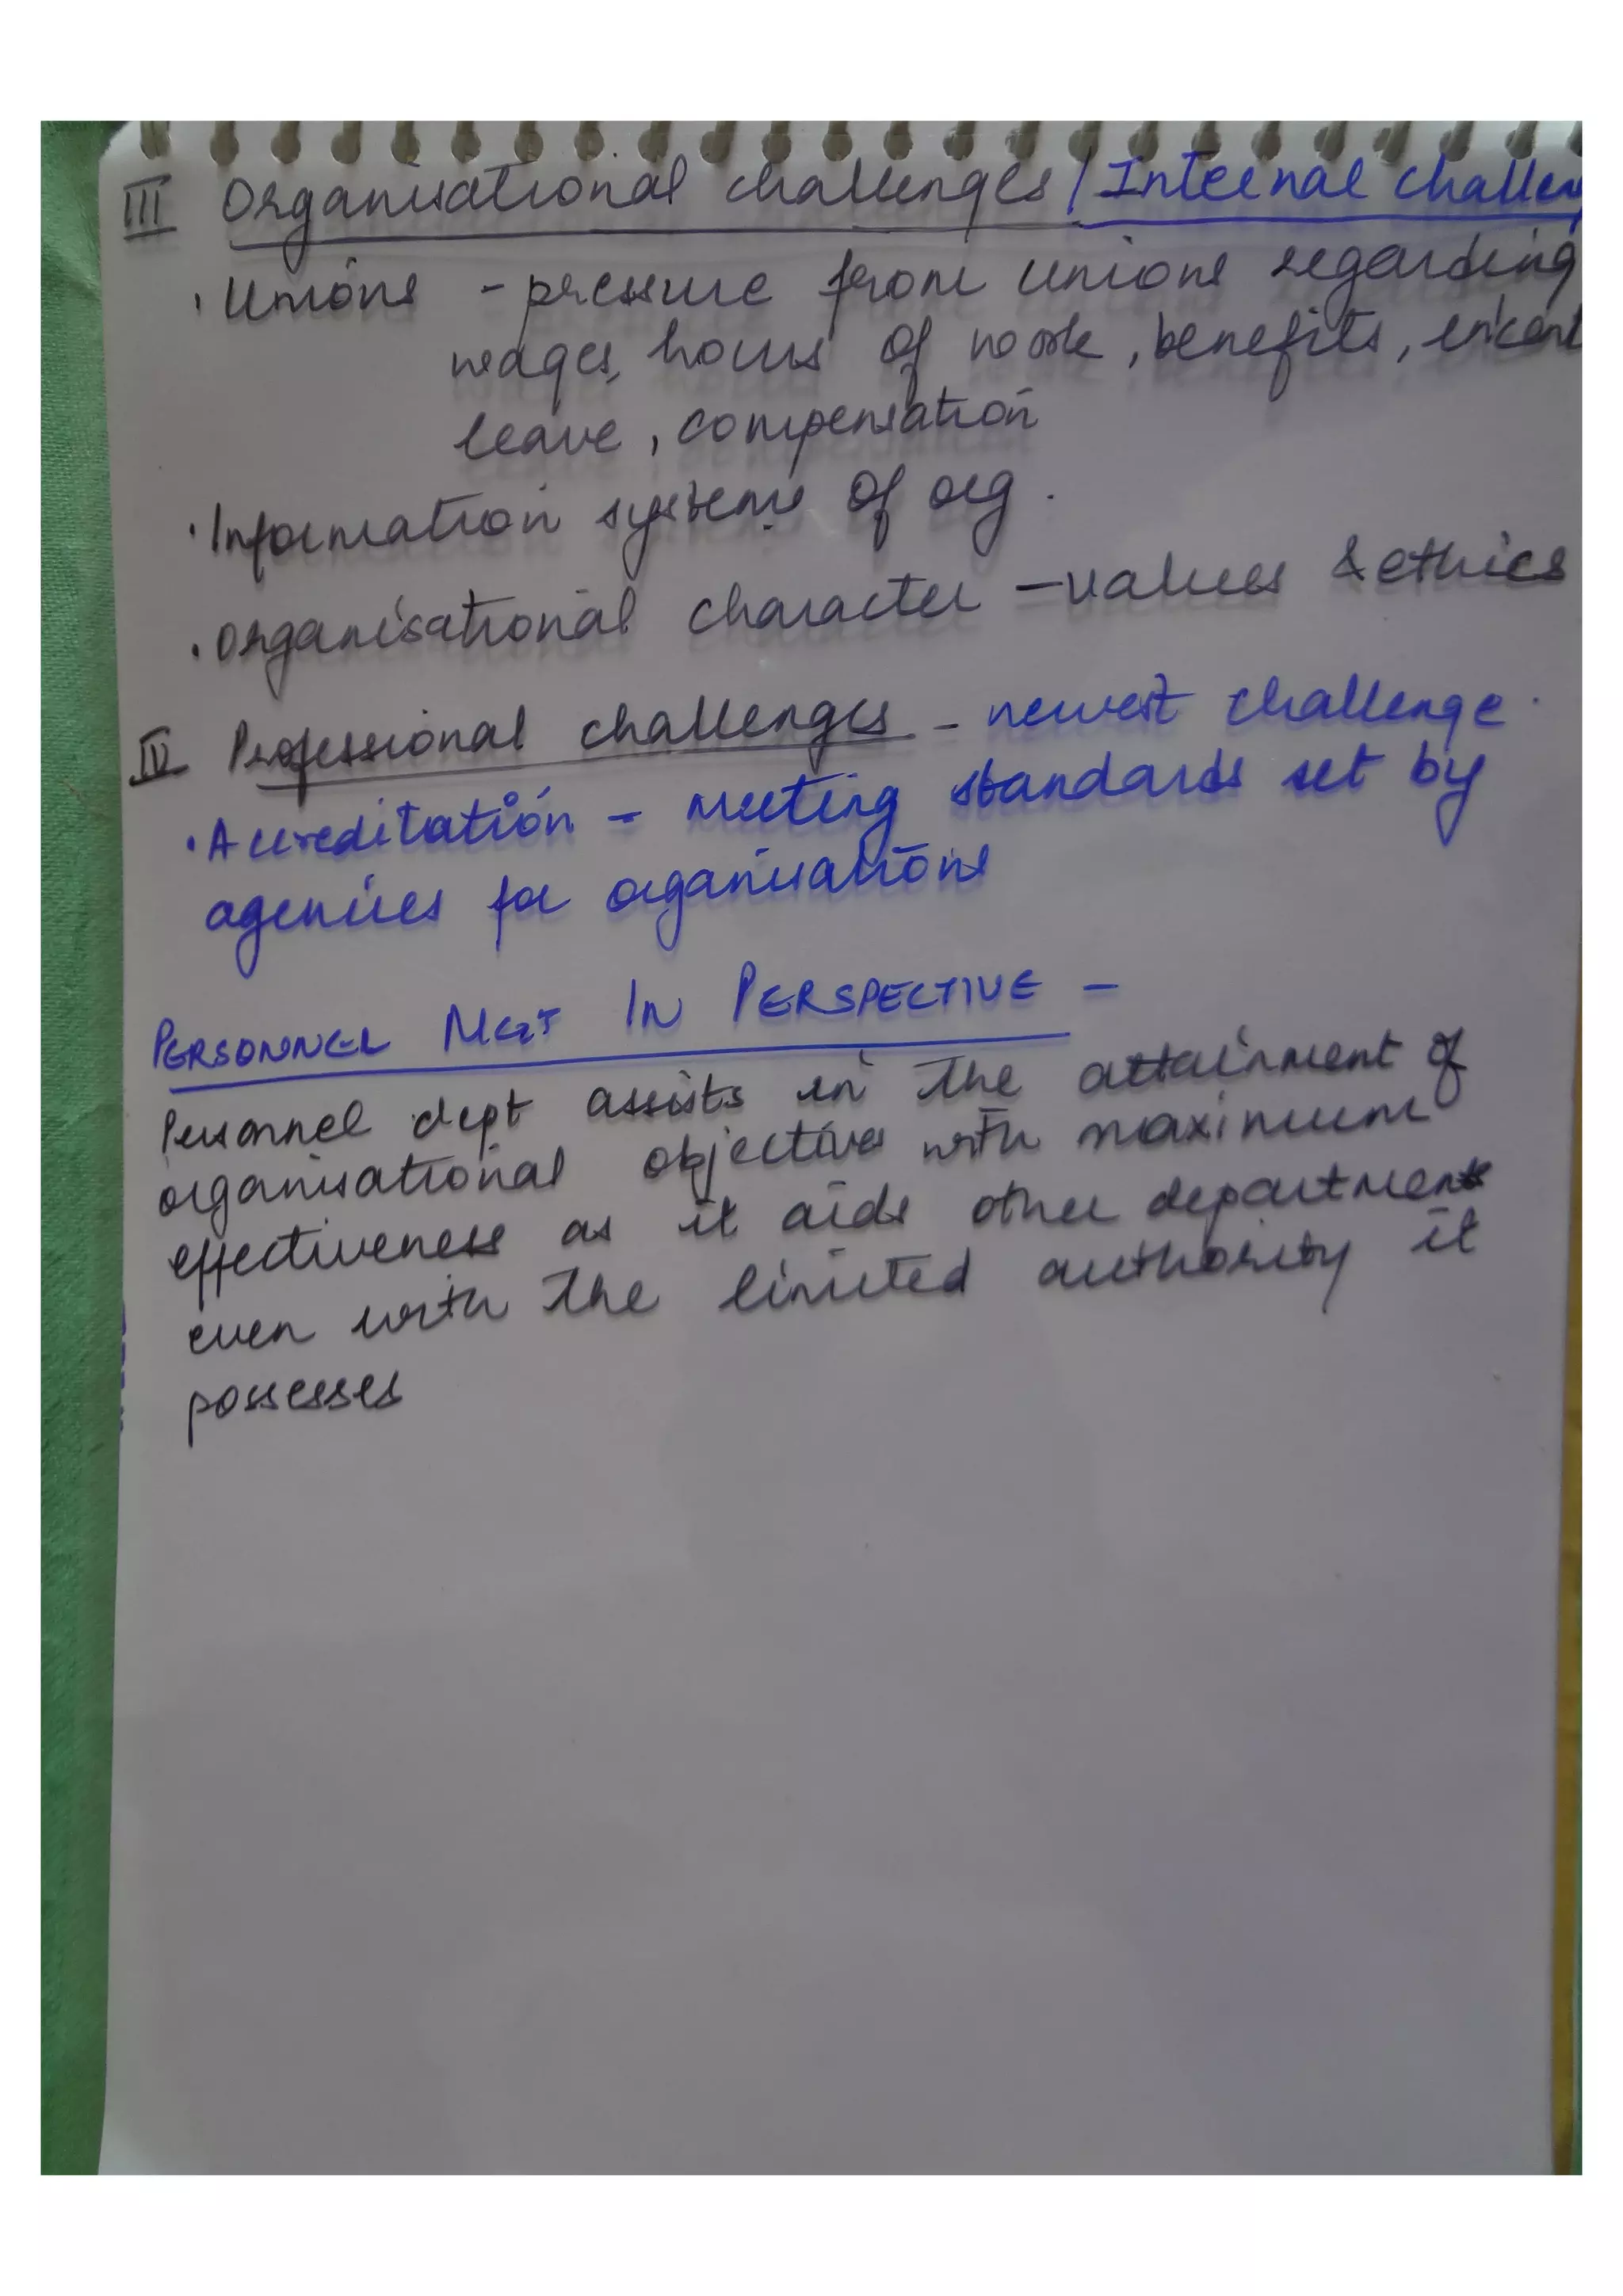 III Organisational challenges / Internal challen
· Unions - pressure from unions regarding
wages, hours of work, benefits,
leave, compensation
· Information systems of org.
· Organisational character - values & ethics
IV Professional challenges - newest challenge.
· Accreditation - meeting standards set by
agencies for organisations
PERSONNEL MGT IN PERSPECTIVE -
Personnel dept assists in the attainment of
organisational objectives with maximum
effectiveness as it aids other departments
even with the limited authority it
possesses